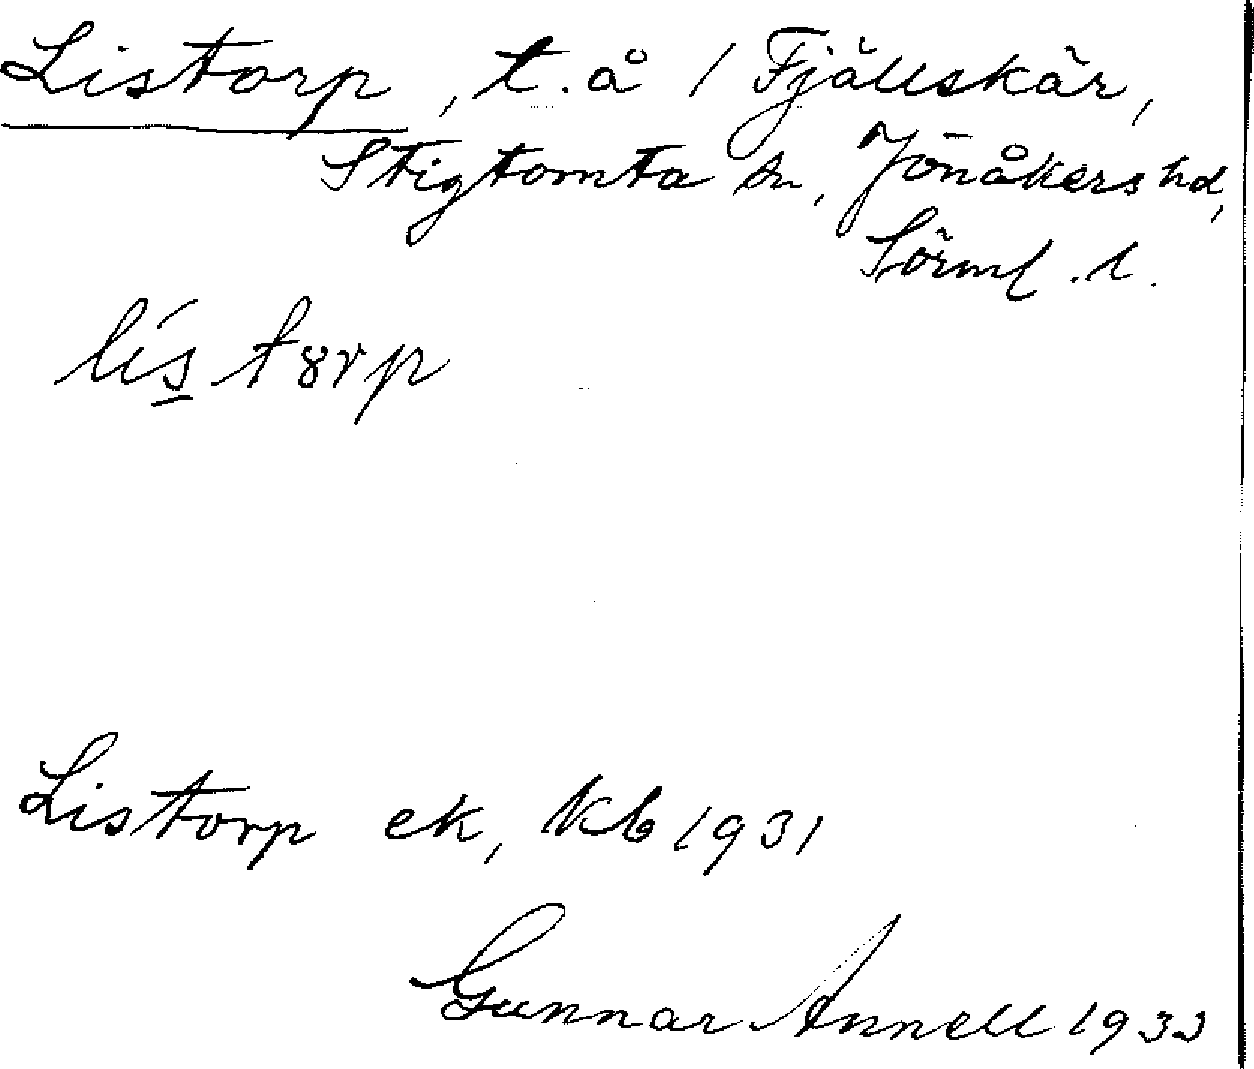 Listorp, t. å / Fjällskär,
Stigtomta sn, Jönåkers hd,
Sörml. l.
lístȣrp
Listorp ek, kb 1931
Gunnar Annell 1933